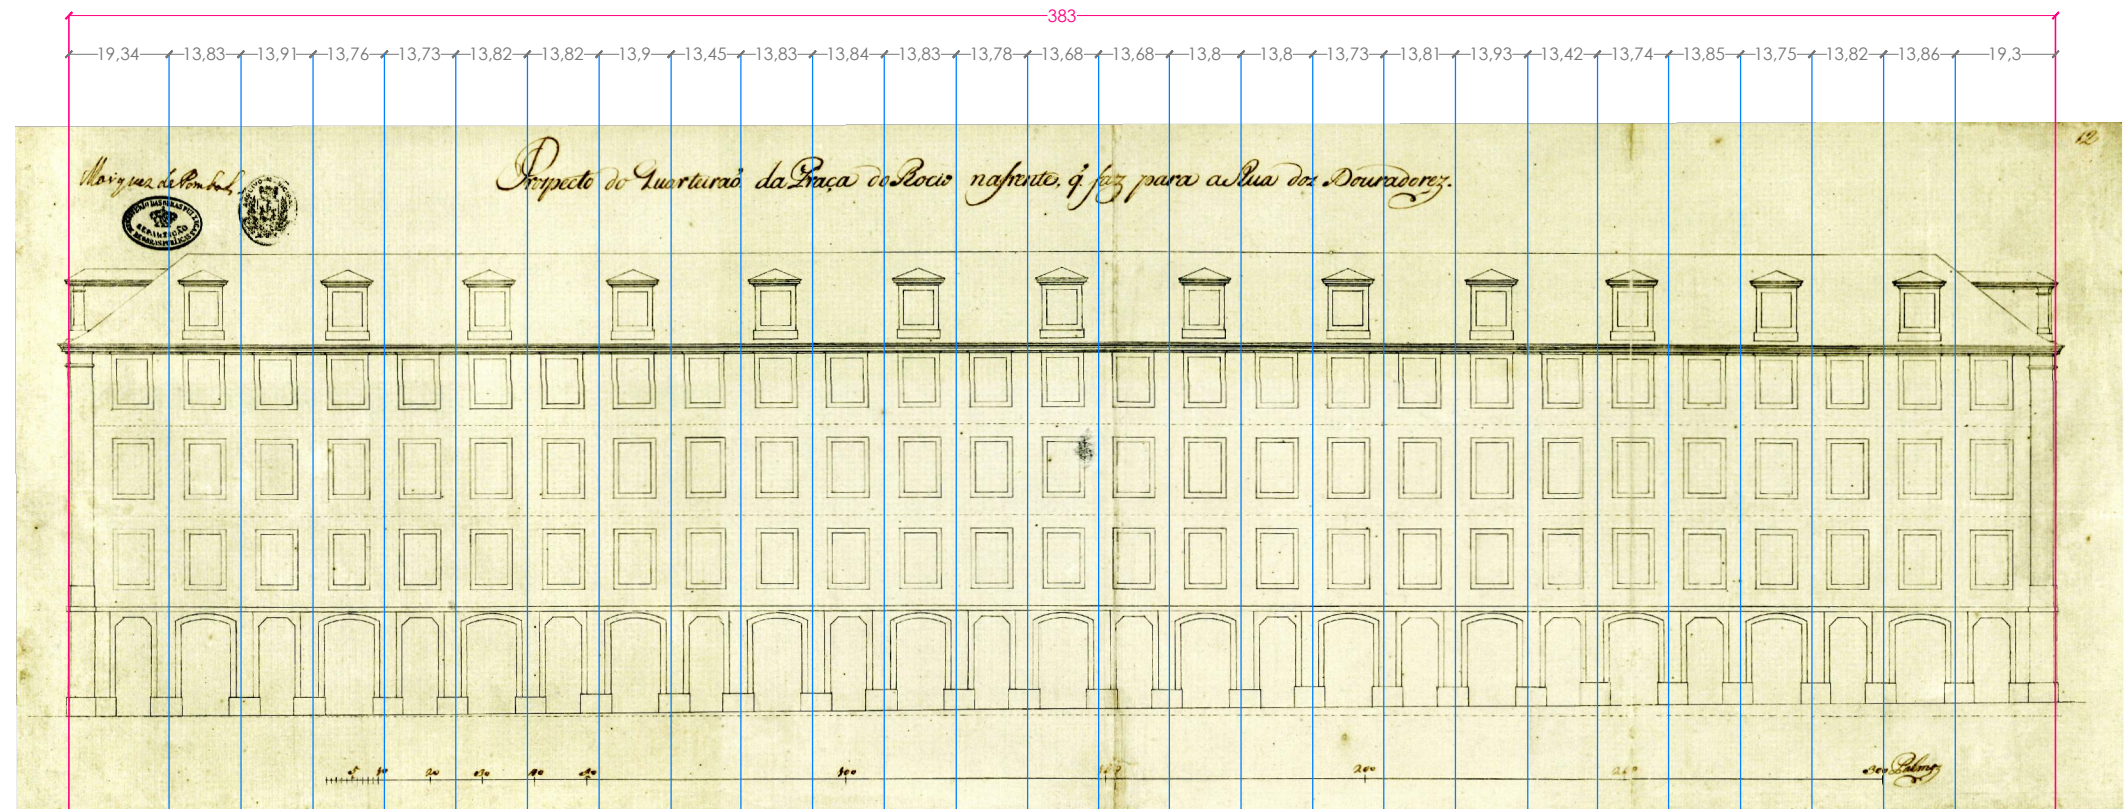 383
19,34 13,83 13,91 13,76 13,73 13,82 13,82 13,9 13,45 13,83 13,84 13,83 13,78 13,68 13,68 13,8 13,8 13,73 13,81 13,93 13,42 13,74 13,85 13,75 13,82 13,86 19,3
12
Marquez de Pombal
Prospecto do Quarteiraõ da Praça do Rocio nafrente, q̃ faz para a Rua dos Douradorez.
5 10 20 30 40 50 100 150 200 250 300 Palmos